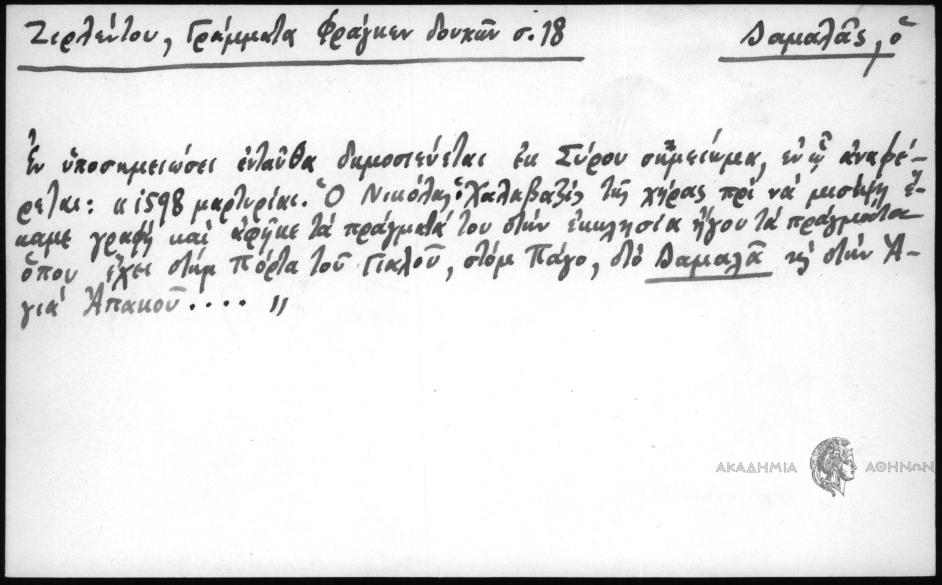 Ζερλέντου, Γράμματα Φράγκων δουκῶν σ. 18
Δαμαλᾶς, ὁ
Ἐν ὑποσημειώσει ἐνταῦθα δημοσιεύεται ἐκ Σύρου σημείωμα, ἐν ᾧ ἀναφέ-
ρεται: "1598 μαρτυρίαι. Ὁ Νικόλας ὁ Χαλαβαζῆς τῆς χήρας πρὶ νὰ μισέψῃ ἔ-
καμε γραφὴ καὶ ἀφῆκε τὰ πράγματά του στὴν ἐκκλησία ἤγου τὰ πράγματα
ὅπου ἔχει στὴμ Πόρτα τοῦ Γιαλοῦ, στὸμ Πάγο, στὸ Δαμαλᾶ κῃ στὴν Ἁ-
γιὰ Ἀπακοῦ . . . . "
ΑΚΑΔΗΜΙΑ ΑΘΗΝΩΝ